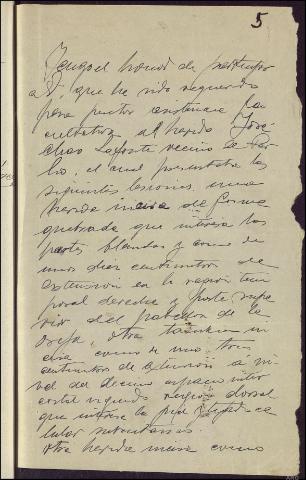 5
Tengo el honor de participar
a V. que he sido requerido
para prestar asistencia fa
cultativa al herido José
Lafonte vecino de
el cual presentaba las
siguientes lesiones, una
herida incisa de forma
quebrada que interesa las
partes blandas y como de
unos diez centimetros de
extension en la region tem
poral derecha y parte supe
rior del pabellon de la
oreja, otra tambien in
cisa como de unos tres
centimetros de extension a ni
vel del decimo espacio inter
costal izquierdo region dorsal
que interesa la piel y tejido ce
lular subcutaneo.
Otra herida incisa como